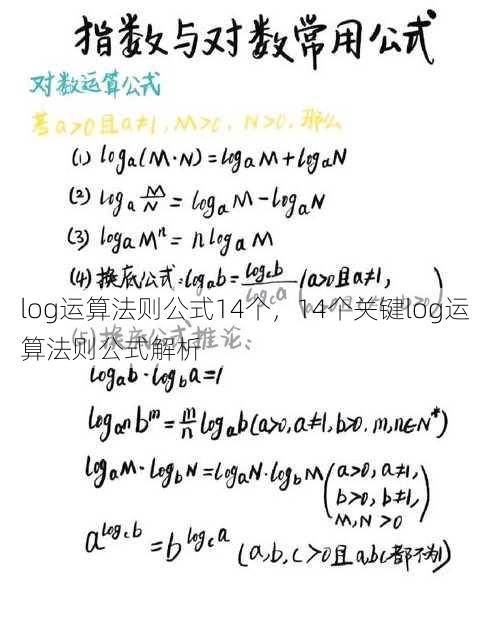 指数与对数常用公式
对数运算公式
若a>0且a≠1, M>0, N>0, 那么
(1) logₐ(M·N)=logₐM+logₐN
(2) logₐ M/N = logₐM-logₐN
(3) logₐMⁿ = nlogₐM
(4) 换底公式:logₐb= log_c b / log_c a (a>0且a≠1,
log运算法则公式14个，14个关键log运
算法则公式解析
(5)换底公式推论:
logₐb·log_b a=1
log_{aⁿ} bᵐ = m/n logₐb(a>0,a≠1,b>0,m,n∈N*)
logₐM·log_b N=logₐN·log_b M(a>0,a≠1,
b>0,b≠1,
M,N>0)
a^{log_c b} = b^{log_c a} (a,b,c>0且abc都不为1)